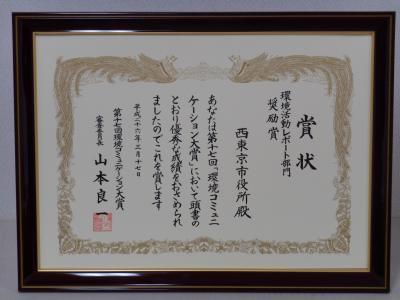 賞状
環境活動レポート部門
奨励賞
西東京市役所殿
あなたは第十七回「環境コミュニ
ケーション大賞」において頭書の
とおり優秀な成績をおさめられ
ましたのでこれを賞します
平成二十六年二月十七日
第十七回環境コミュニケーション大賞
審査委員長
山本良一